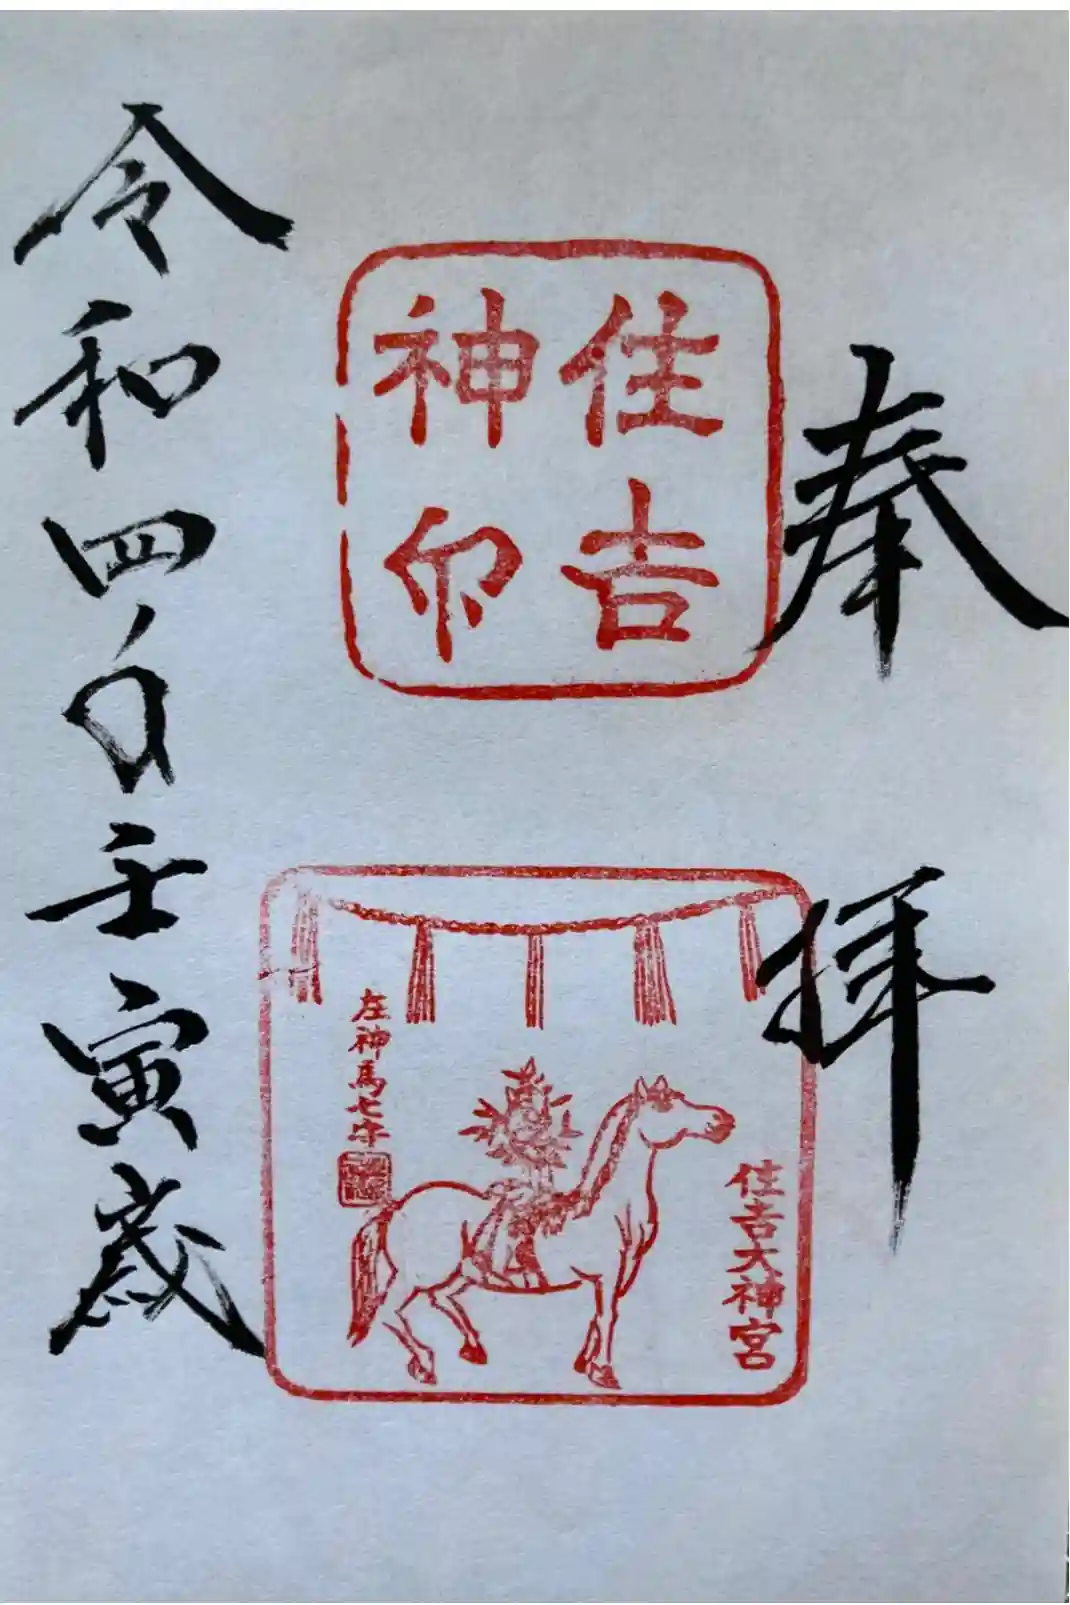 奉拝
住吉
神印
住吉大神宮
左神馬七才
令和四年壬寅歳